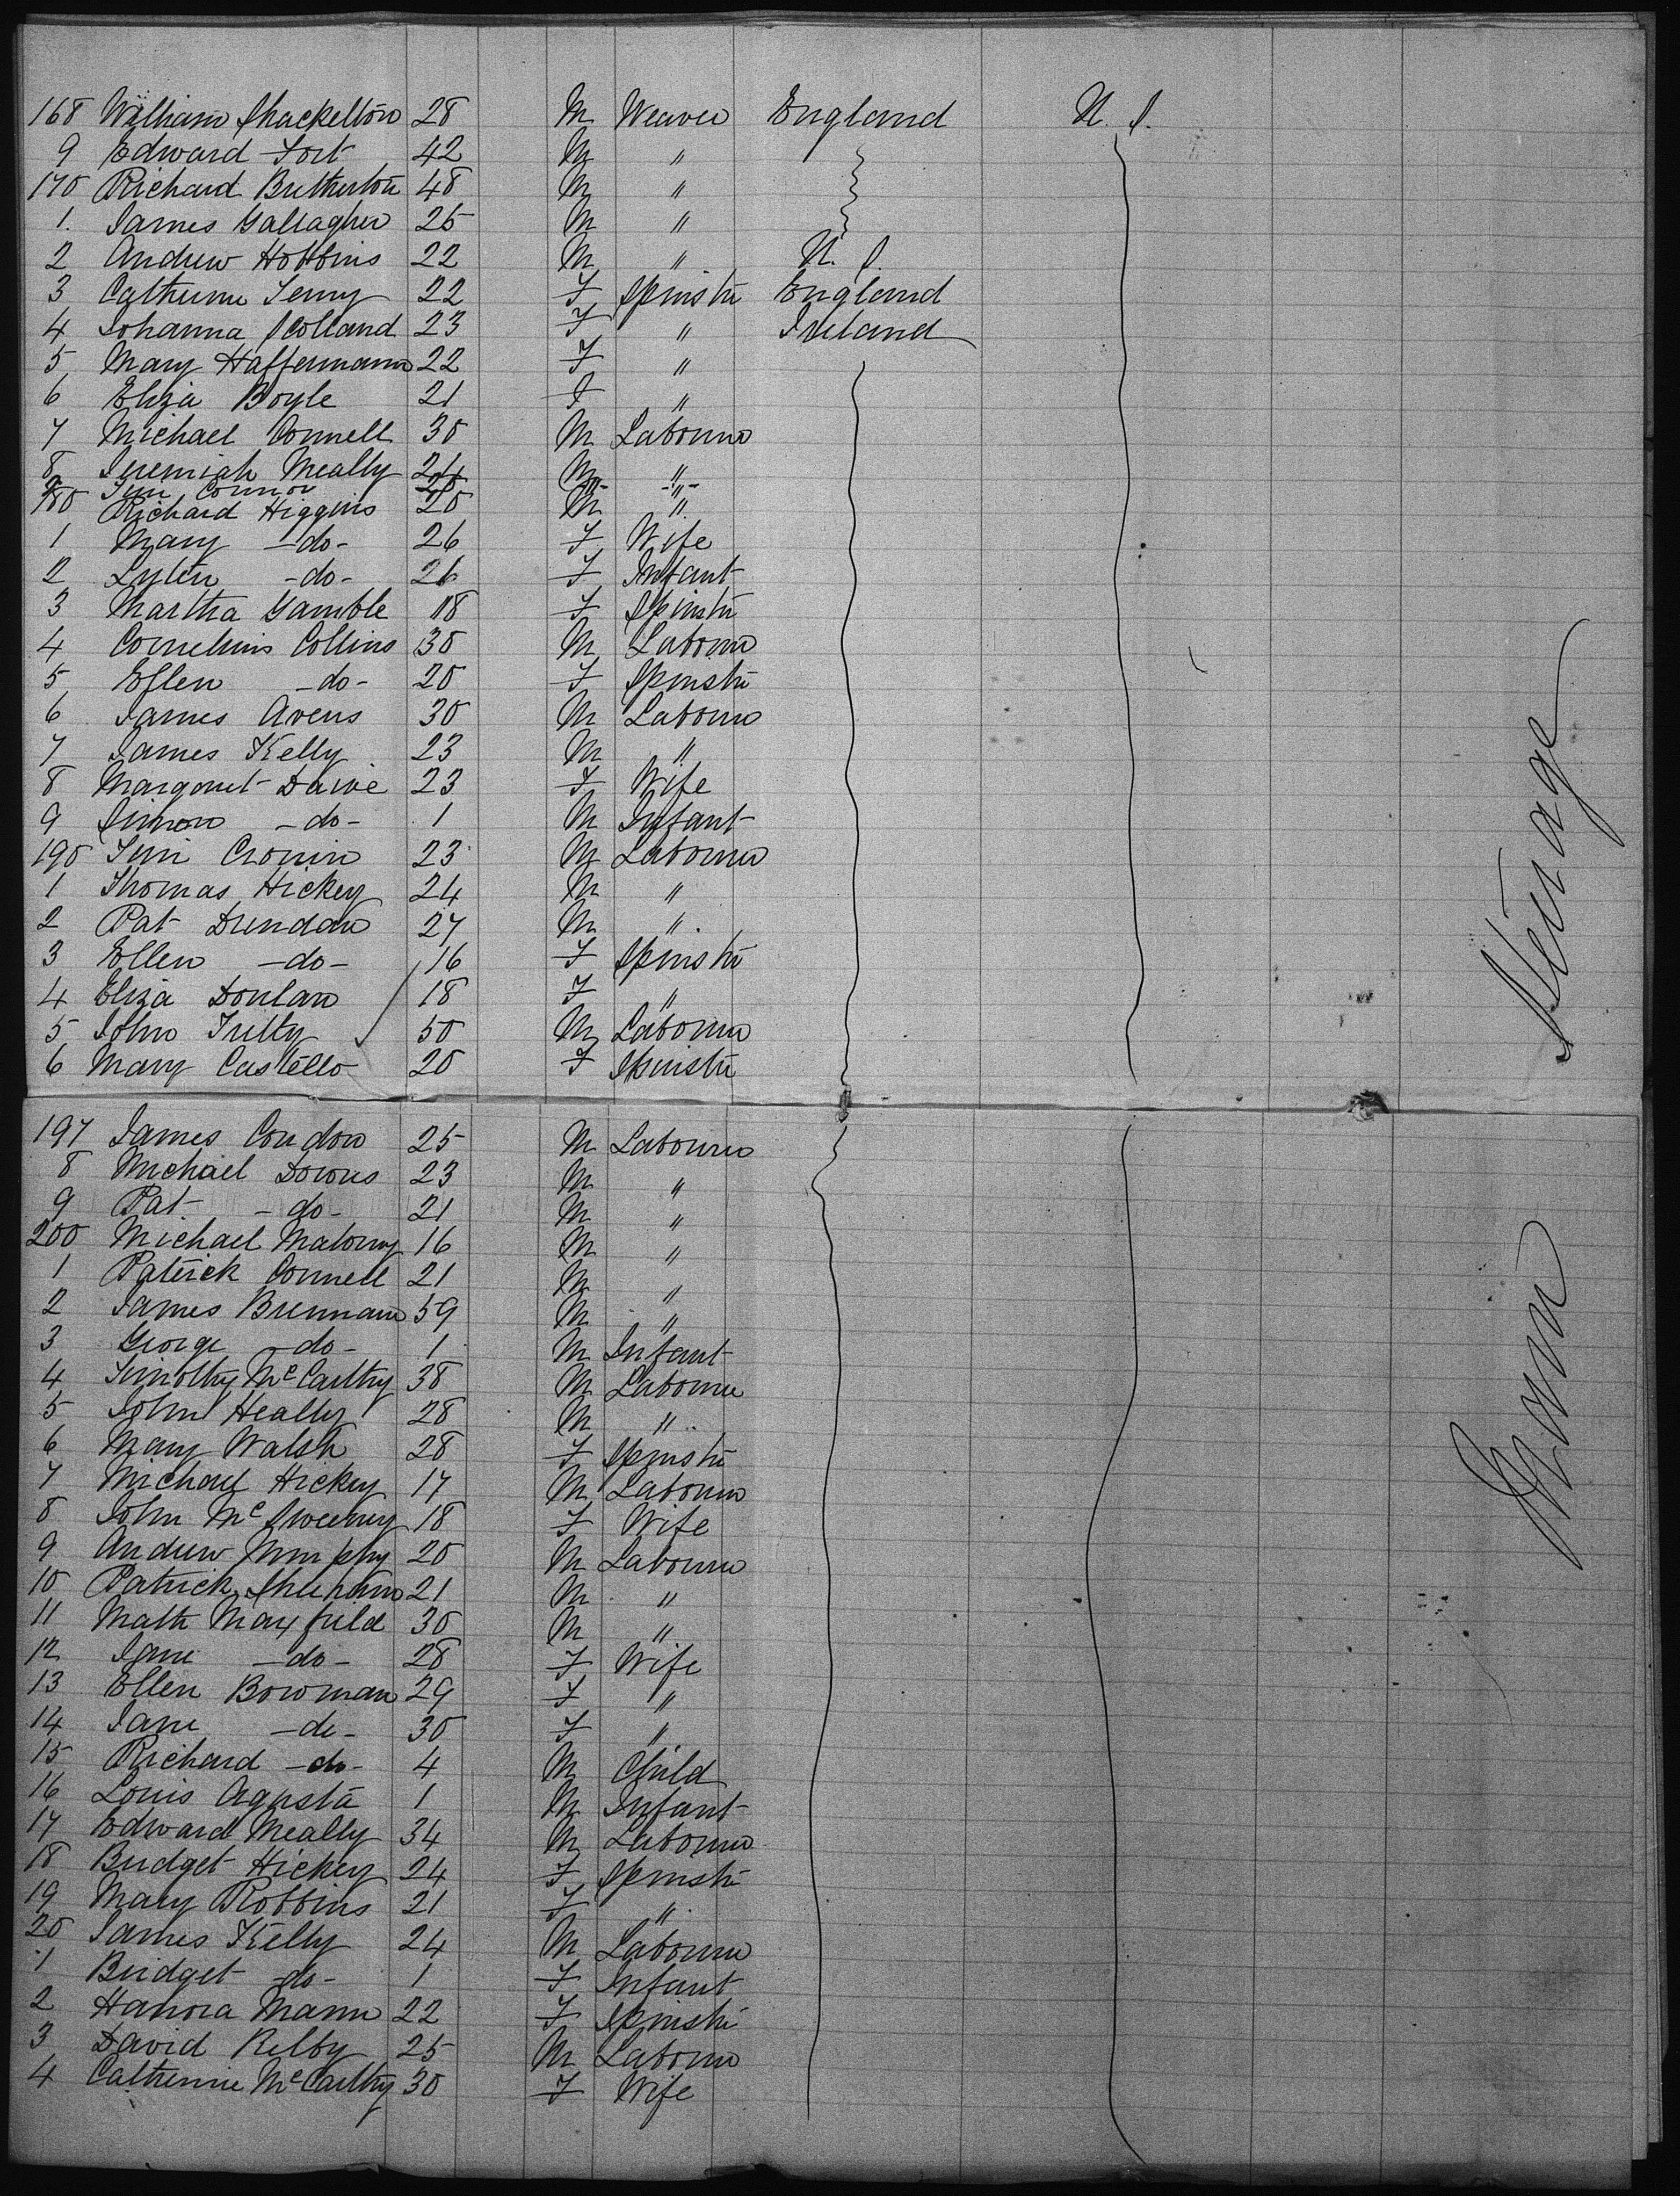 168 William Shackelton 28 M Weaver England U. S.
9 Edward Fort 42 M "
170 Richard Bretherton 48 M "
1. James Gallagher 25 M "
2 Andrew Hobbins 22 M " U. S.
3 Catherine Feeny 22 F Spinstr England
4 Johanna Scolland 23 F " Ireland
5 Mary Haffermann 22 F "
6 Eliza Boyle 21 F "
7 Michael Connell 30 M Labourer
8 Jeremiah Meally 24 M "
9 Jim Connor M - " -
180 Richard Higgins 20 M "
1 Mary -do- 26 F Wife
2 -do- F Infant
3 Martha Gamble 18 F Spinstr
4 Cornelius Collins 30 M Labourer
5 Ellen -do- 20 F Spinstr
6 James Avens 30 M Labourer
7 James Kelly 23 M "
8 Margaret 23 F Wife
9 Simon -do- 1 M Infant
190 Jim Cronin 23 M Labourer
1 Thomas Hickey 24 M "
2 Pat 27 M "
3 Ellen -do- 16 F Spinstr
4 Eliza Donlan 18 F "
5 John 50 M Labourer
6 Mary Castello 20 F Spinstr
Steerage
197 James Condon 25 M Labourer
8 Michael Downs 23 M "
9 Pat -do- 21 M "
200 Michael Malony 16 M "
1 Patrick Connell 21 M "
2 James Brennan 59 M "
3 George -do- 1 M Infant
4 Timothy McCarthy 38 M Labourer
5 John Healy 28 M "
6 Mary Walsh 28 F Spinstr
7 Michael Hickey 17 M Labourer
8 John McSweeney 18 F Wife
9 Andrew Murphy 20 M Labourer
10 Patrick 21 M "
11 Math Mayfield 30 M "
12 Jane -do- 28 F Wife
13 Ellen Bowman 29 F "
14 Jane -do- 30 F "
15 Richard -do- 4 M Child
16 Louis Agusta 1 M Infant
17 Edward Meally 34 M Labourer
18 Bridget Hickey 24 F Spinstr
19 Mary Robbins 21 F "
20 James Kelly 24 M Labourer
1 Bridget -do- 1 F Infant
2 Hanora Mann 22 F Spinstr
3 David Relby 25 M Labourer
4 Catherine McCarthy 30 F Wife